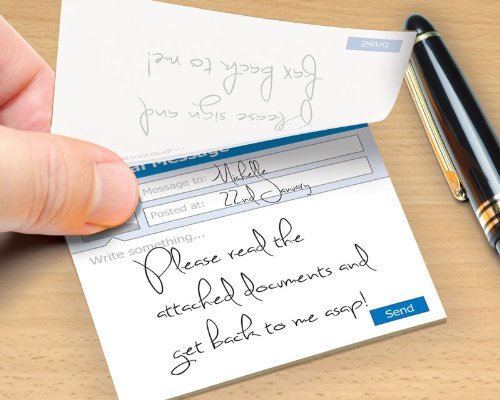 Please sign and
fax back to me!
Send
Message
Message to: Michelle
Posted at: 22nd January
Write something...
Please read the
attached documents and
get back to me asap!
Send